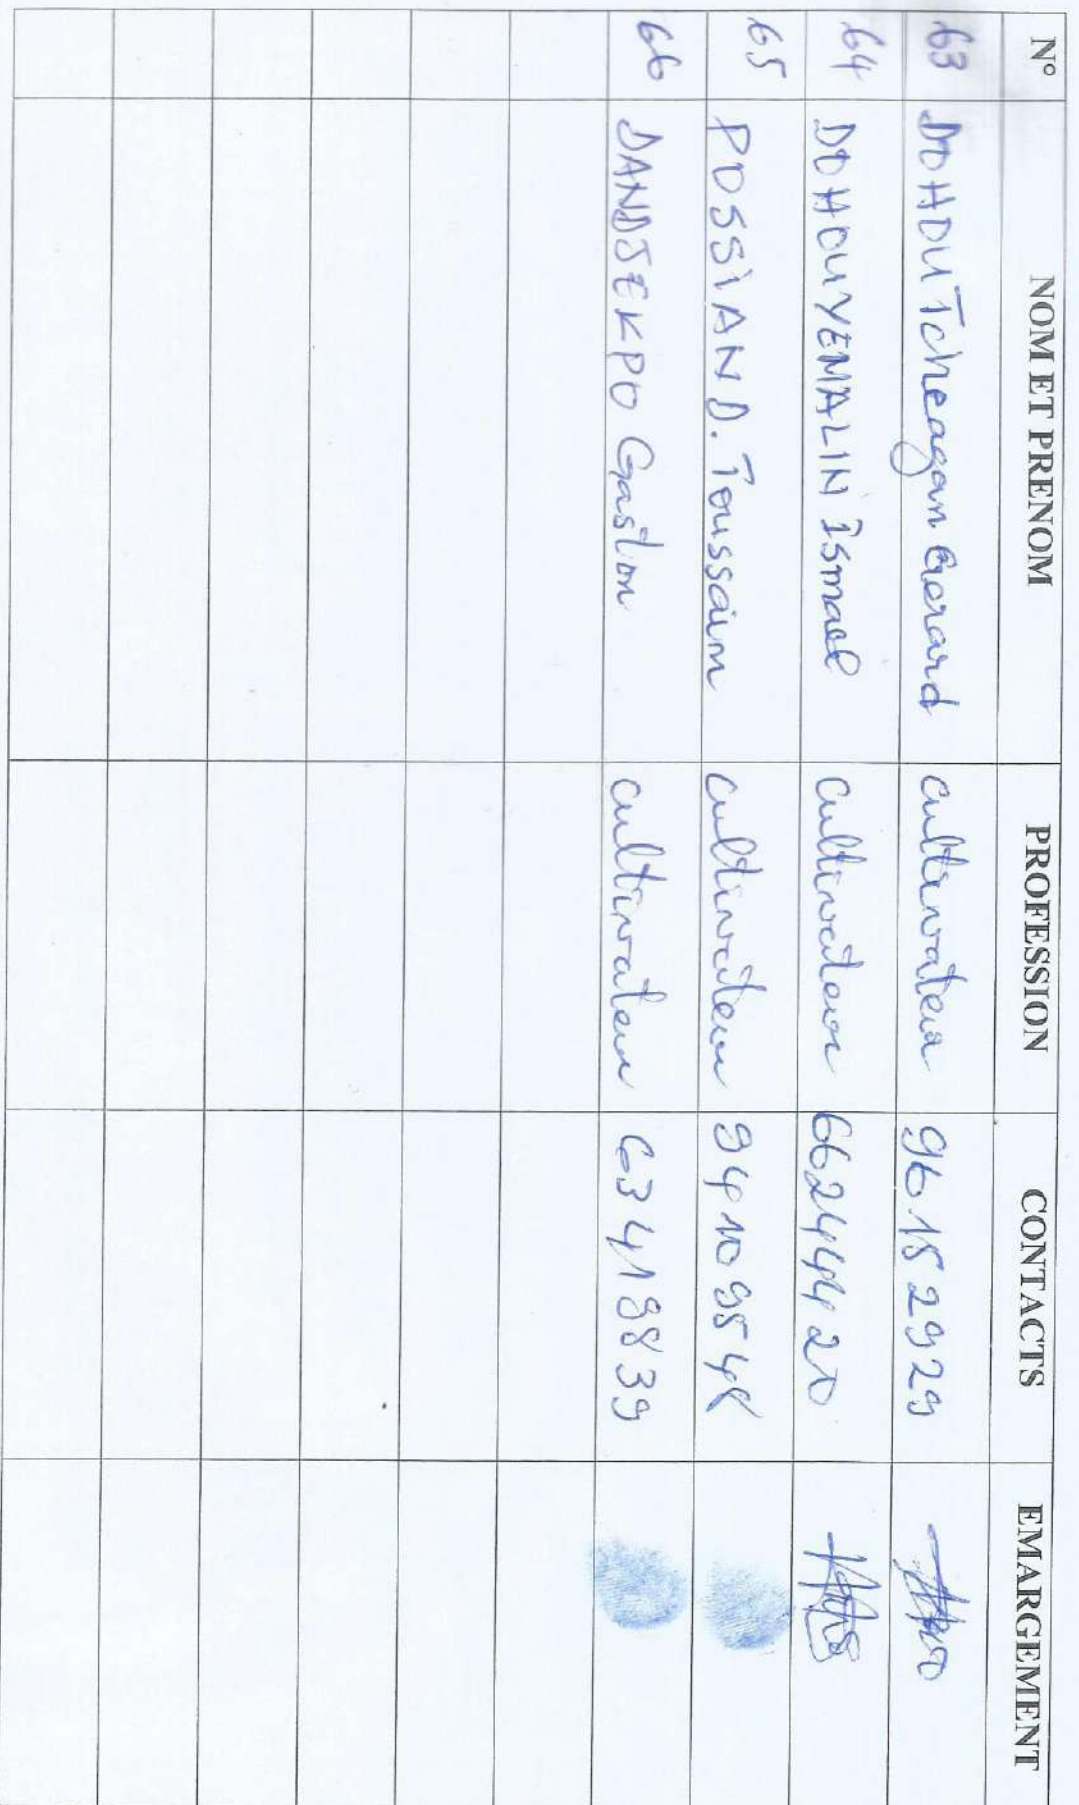 N° NOM ET PRENOM PROFESSION CONTACTS EMARGEMENT
63 DOHOU Tcheagan Gerard cultivateur 96152929
64 DOHOUYEMALIN Ismael cultivateur 66244420
65 POSSIAN D. Toussaim cultivateur 94109548
66 DANDJEKPO Gaston cultivateur 63419839